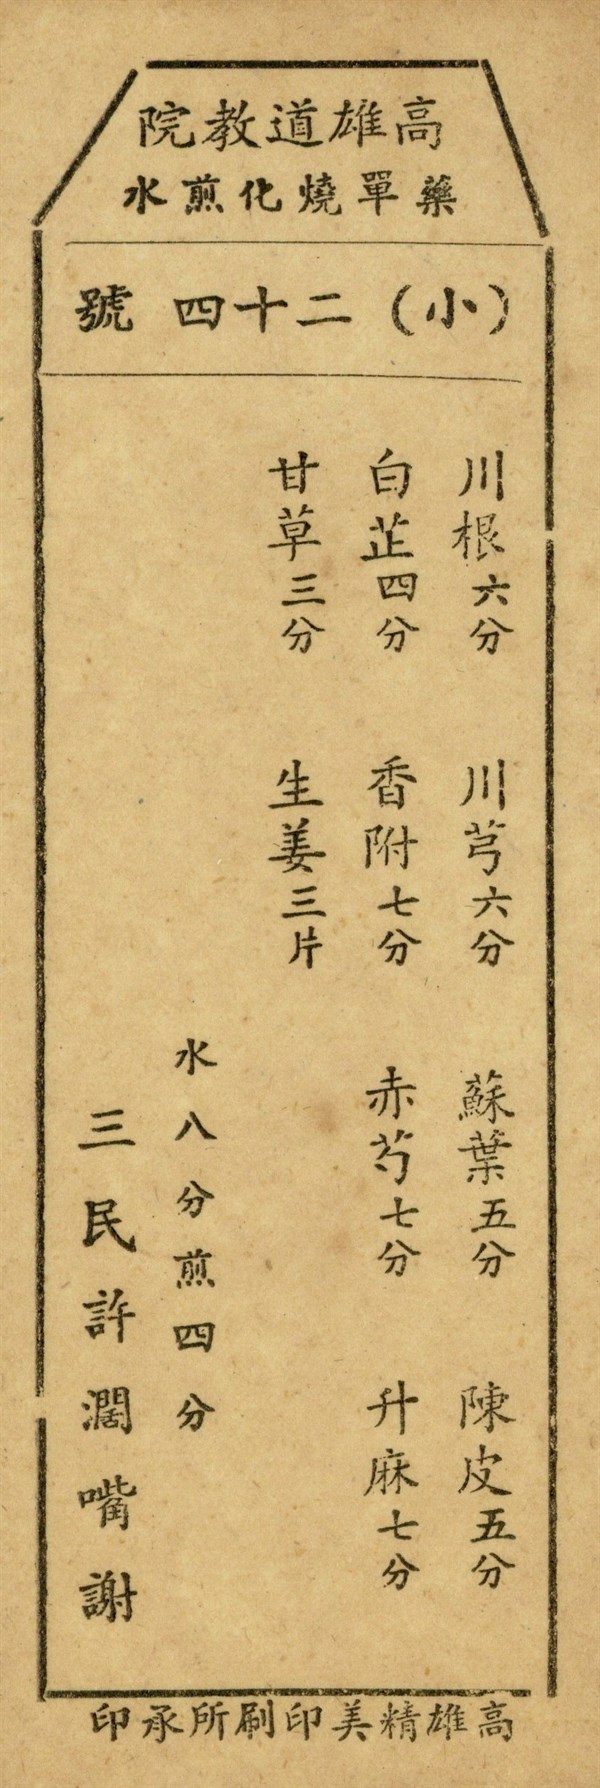 高雄道教院
藥單燒化煎水
（小）二十四號
川根六分　川芎六分　蘇葉五分　陳皮五分
白芷四分　香附七分　赤芍七分　升麻七分
甘草三分　生姜三片
水八分煎四分
三民許濶嘴謝
高雄精美印刷所承印